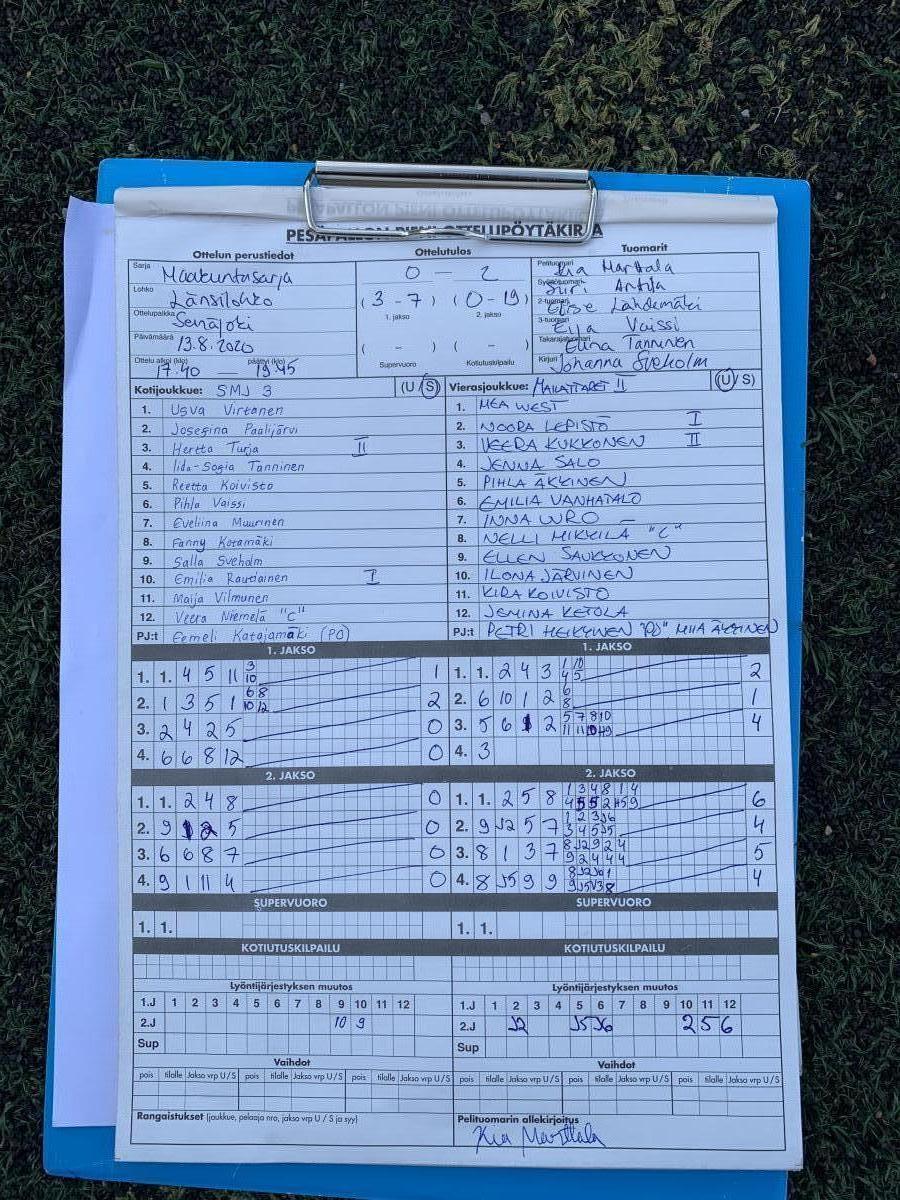 PESÄPALLON PIENI OTTELUPÖYTÄKIRJA
Ottelun perustiedot
Sarja Maakuntasarja
Lohko Länsilohko
Ottelupaikka Seinäjoki
Päivämäärä 13.8.2020
Ottelu alkoi (klo) 17.40 — päättyi (klo) 19.45
Ottelutulos
0 — 2
(3 - 7) (0 - 19)
1. jakso 2. jakso
( - ) ( - )
Supervuoro Kotiutuskilpailu
Tuomarit
Pelituomari Kia Marttala
Syöttötuomari Siiri Anttila
2-tuomari Elise Lahdemäki
3-tuomari Eija Vaissi
Takarajatuomari Elina Tanninen
Kirjuri Johanna Sveholm
Kotijoukkue: SMJ 3 (U / S)
1. Usva Virtanen
2. Josefina Paalijärvi
3. Hertta Turja II
4. Iida-Sofia Tanninen
5. Reetta Koivisto
6. Pihla Vaissi
7. Eveliina Muurinen
8. Fanny Kotamäki
9. Salla Sveholm
10. Emilia Rautiainen I
11. Maija Vilmunen
12. Veera Niemelä "C"
PJ:t Eemeli Katajamäki (PO)
Vierasjoukkue: MAILATTARET II (U / S)
1. MEA WEST
2. NOORA LEPISTÖ I
3. VEERA KUKKONEN II
4. JENNA SALO
5. PIHLA ÄKKINEN
6. EMILIA VANHATALO
7. INNA URO
8. NELLI MIKKILÄ "C"
9. ELLEN SAUKKONEN
10. ILONA JÄRVINEN
11. KIRA KOIVISTO
12. JEMINA KETOLA
PJ:t PETRI HEIKKINEN "PJ" MIIA ÄKKINEN
1. JAKSO
1. 1. 4 5 11 3 10 1
2. 1 3 5 1 6 8 10 12 2
3. 2 4 2 5 0
4. 6 6 8 12 0
1. JAKSO
1. 1. 2 4 3 1 10 4 5 2
2. 6 10 1 2 6 8 1
3. 5 6 1 2 5 7 8 10 4
4. 3
2. JAKSO
1. 1. 2 4 8 0
2. 9 5 0
3. 6 6 8 7 0
4. 9 1 11 4 0
2. JAKSO
1. 1. 2 5 8 1 3 4 8 1 4 6
2. 9 J2 5 7 1 2 3 J6 4
3. 8 1 3 7 8 J2 9 2 4 9 2 4 4 4 5
4. 8 J5 9 9 4
SUPERVUORO
1. 1.
SUPERVUORO
1. 1.
KOTIUTUSKILPAILU
KOTIUTUSKILPAILU
Lyöntijärjestyksen muutos
1.J 1 2 3 4 5 6 7 8 9 10 11 12
2.J 10 9
Sup
Lyöntijärjestyksen muutos
1.J 1 2 3 4 5 6 7 8 9 10 11 12
2.J J2 J5 J6 2 5 6
Sup
Vaihdot
pois tilalle Jakso vrp U / S pois tilalle Jakso vrp U / S pois tilalle Jakso vrp U / S
Vaihdot
pois tilalle Jakso vrp U / S pois tilalle Jakso vrp U / S pois tilalle Jakso vrp U / S
Rangaistukset (joukkue, pelaaja nro, jakso vrp U / S ja syy)
Pelituomarin allekirjoitus
Kia Marttala